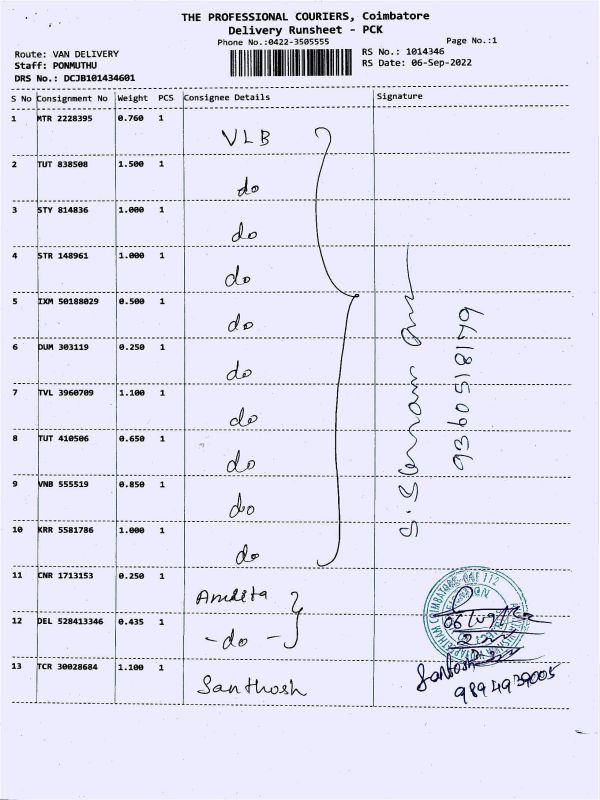 THE PROFESSIONAL COURIERS, Coimbatore
Delivery Runsheet - PCK
Phone No.:0422-3505555
Page No.:1
Route: VAN DELIVERY
RS No.: 1014346
Staff: PONMUTHU
RS Date: 06-Sep-2022
DRS No.: DCJB101434601
S No Consignment No Weight PCS Consignee Details Signature
1 MTR 2228395 0.760 1
VLB
2 TUT 838508 1.500 1
do
3 STY 814836 1.000 1
do
4 STR 148961 1.000 1
do
5 IXM 50188029 0.500 1
do
6 DUM 303119 0.250 1
do
7 TVL 3960709 1.100 1
do
8 TUT 410506 0.650 1
do
9 VNB 555519 0.850 1
do
10 KRR 5581786 1.000 1
do
9360518179
11 CNR 1713153 0.250 1
12 DEL 528413346 0.435 1
- do -
13 TCR 30028684 1.100 1
Santhosh
Santosh
9894939005